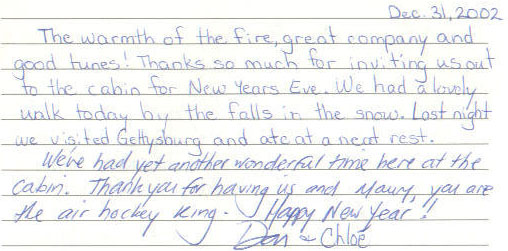 Dec. 31, 2002
The warmth of the fire, great company and
good tunes! Thanks so much for inviting us out
to the cabin for New Years Eve. We had a lovely
walk today by the falls in the snow. Last night
we visited Gettysburg and ate at a neat rest.
We've had yet another wonderful time here at the
cabin. Thank you for having us and Maury, you are
the air hockey king. Happy New Year!!
Don & Chloe